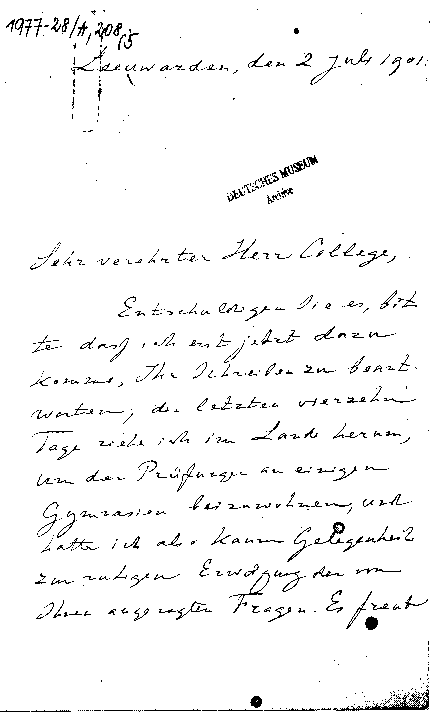 1977-28/A,208/5
Leeuwarden, den 2 Juli 1901.
DEUTSCHES MUSEUM
Archive
Sehr verehrter Herr College,
Entschuldigen Sie es, bit
te dass ich erst jetzt dazu
komme, Ihr Schreiben zu beant-
worten; die letzten vierzehn
Tage ziehe ich im Lande herum,
um den Prüfungen an einigen
Gymnasien beizuwohnen, und
hatte ich also kaum Gelegenheit
zur ruhigen Erwägung der von
Ihnen angeregten Fragen. Es freut